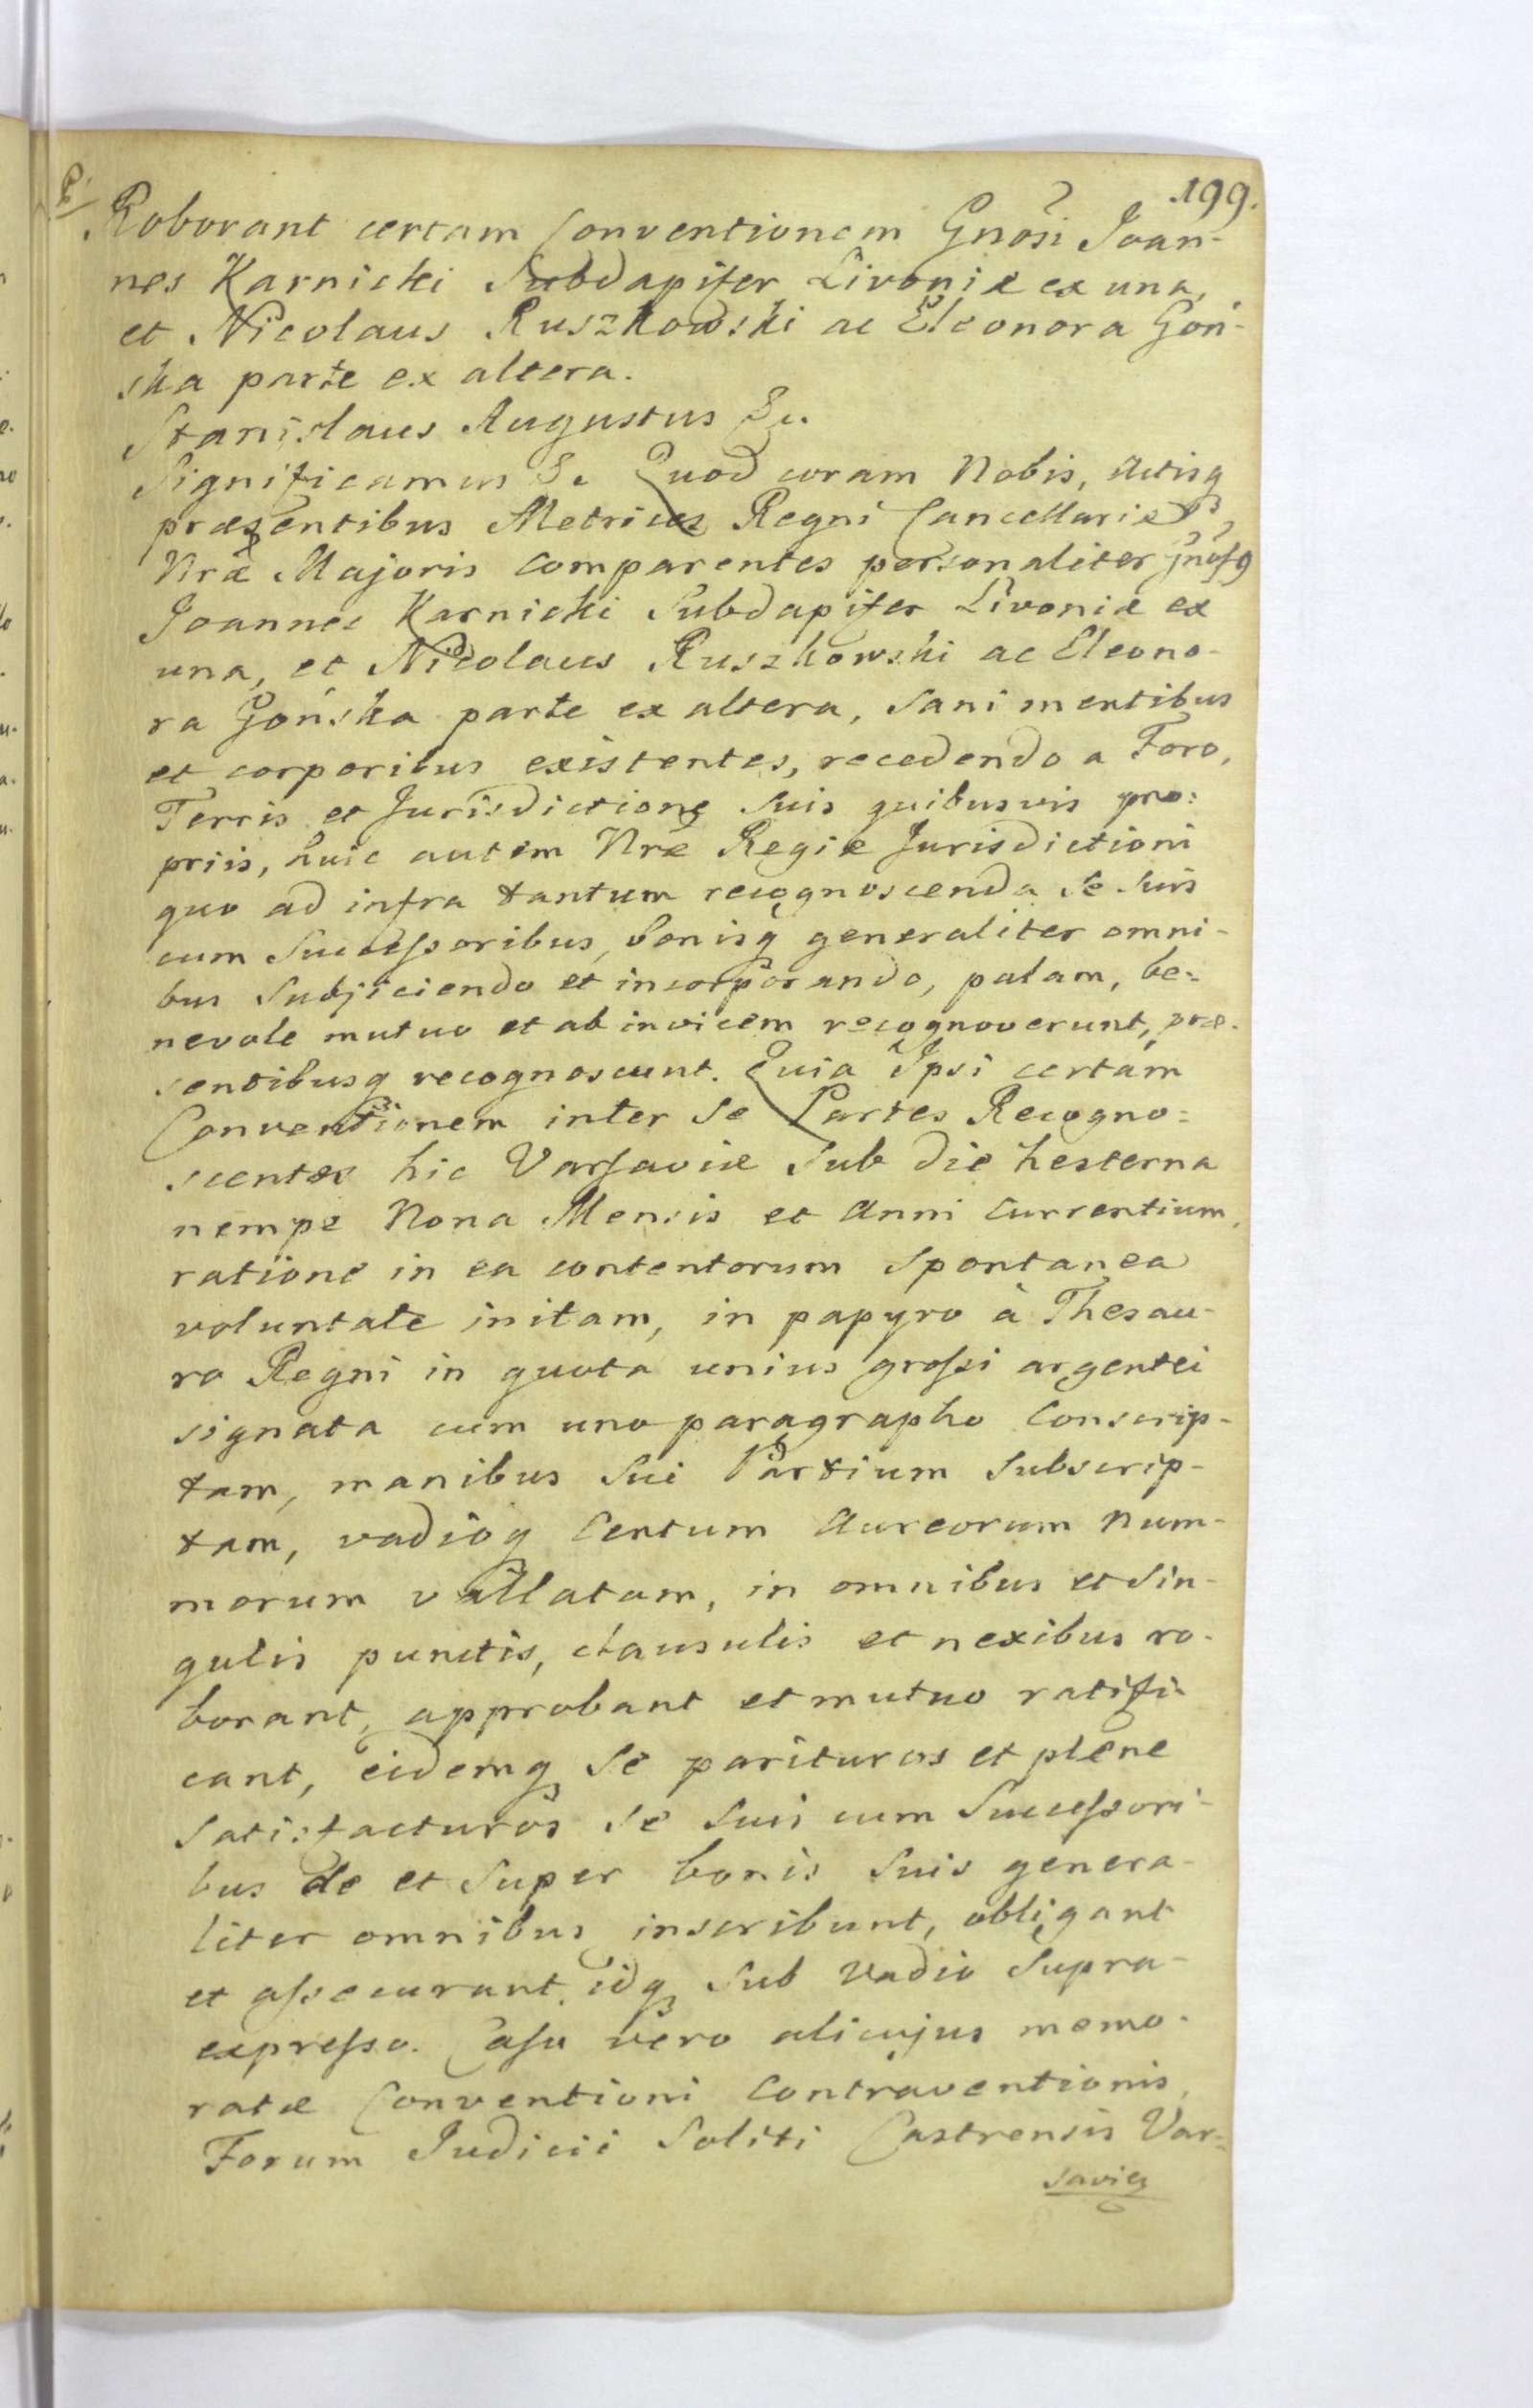 199.
Roborant certam Conventionem Gnõsi Joan-
nes Karnicki Subdapifer Livoniæ ex una,
et Nicolaus Ruszkowski ac Eleonora Goń-
ska parte ex altera.
Stanislaus Augustus &c.
Significamus &c Quod coram Nobis, Actisq
præsentibus Metrices Regni Cancellariæ
Nræ Majoris comparentes personaliter Gnõsg
Joannes Karnicki Subdapifer Livoniæ ex
una, et Nicolaus Ruszkowski ac Eleono-
ra Gońska parte ex altera, sani mentibus
et corporibus existentes, recedendo a Foro,
Terris et Jurisdictione suis quibusvis pro:
priis, huic autem Nræ Regiæ Jurisdictioni
quo ad infra tantum recognoscenda se suis
cum Successoribus, bonisq generaliter omni-
bus subjiciendo et incorporando, palam, be-
nevole mutuo et ab invicem recognoverunt, præ-
sentibusq recognoscunt. Quia Ipsi certam
Conventionem inter se Partes Recogno-
scentes hic Varsaviæ sub die hesterna
nempe Nona Mensis et Anni Currentium,
ratione in ea contentorum spontanea
voluntate initam, in papyro à Thesau-
ro Regni in quota unius grossi argentei
signata cum uno paragrapho Conscrip-
tam, manibus sui Partium subscrip-
tam, vadioq Centum Aureorum Num-
morum vallatam, in omnibus et sin-
gulis punctis, clausulis et nexibus ro-
borant, approbant et mutuo ratifi-
cant, eidemq se parituros et plene
satisfacturos se suis cum Successori-
bus de et super bonis suis genera-
liter omnibus inscribunt, obligant
et assecurant, idq sub vadio supra-
expresso. Casu vero alicujus memo-
ratæ Conventioni Contraventionis,
Forum Judicii Soliti Castrensis Var-
saviæ